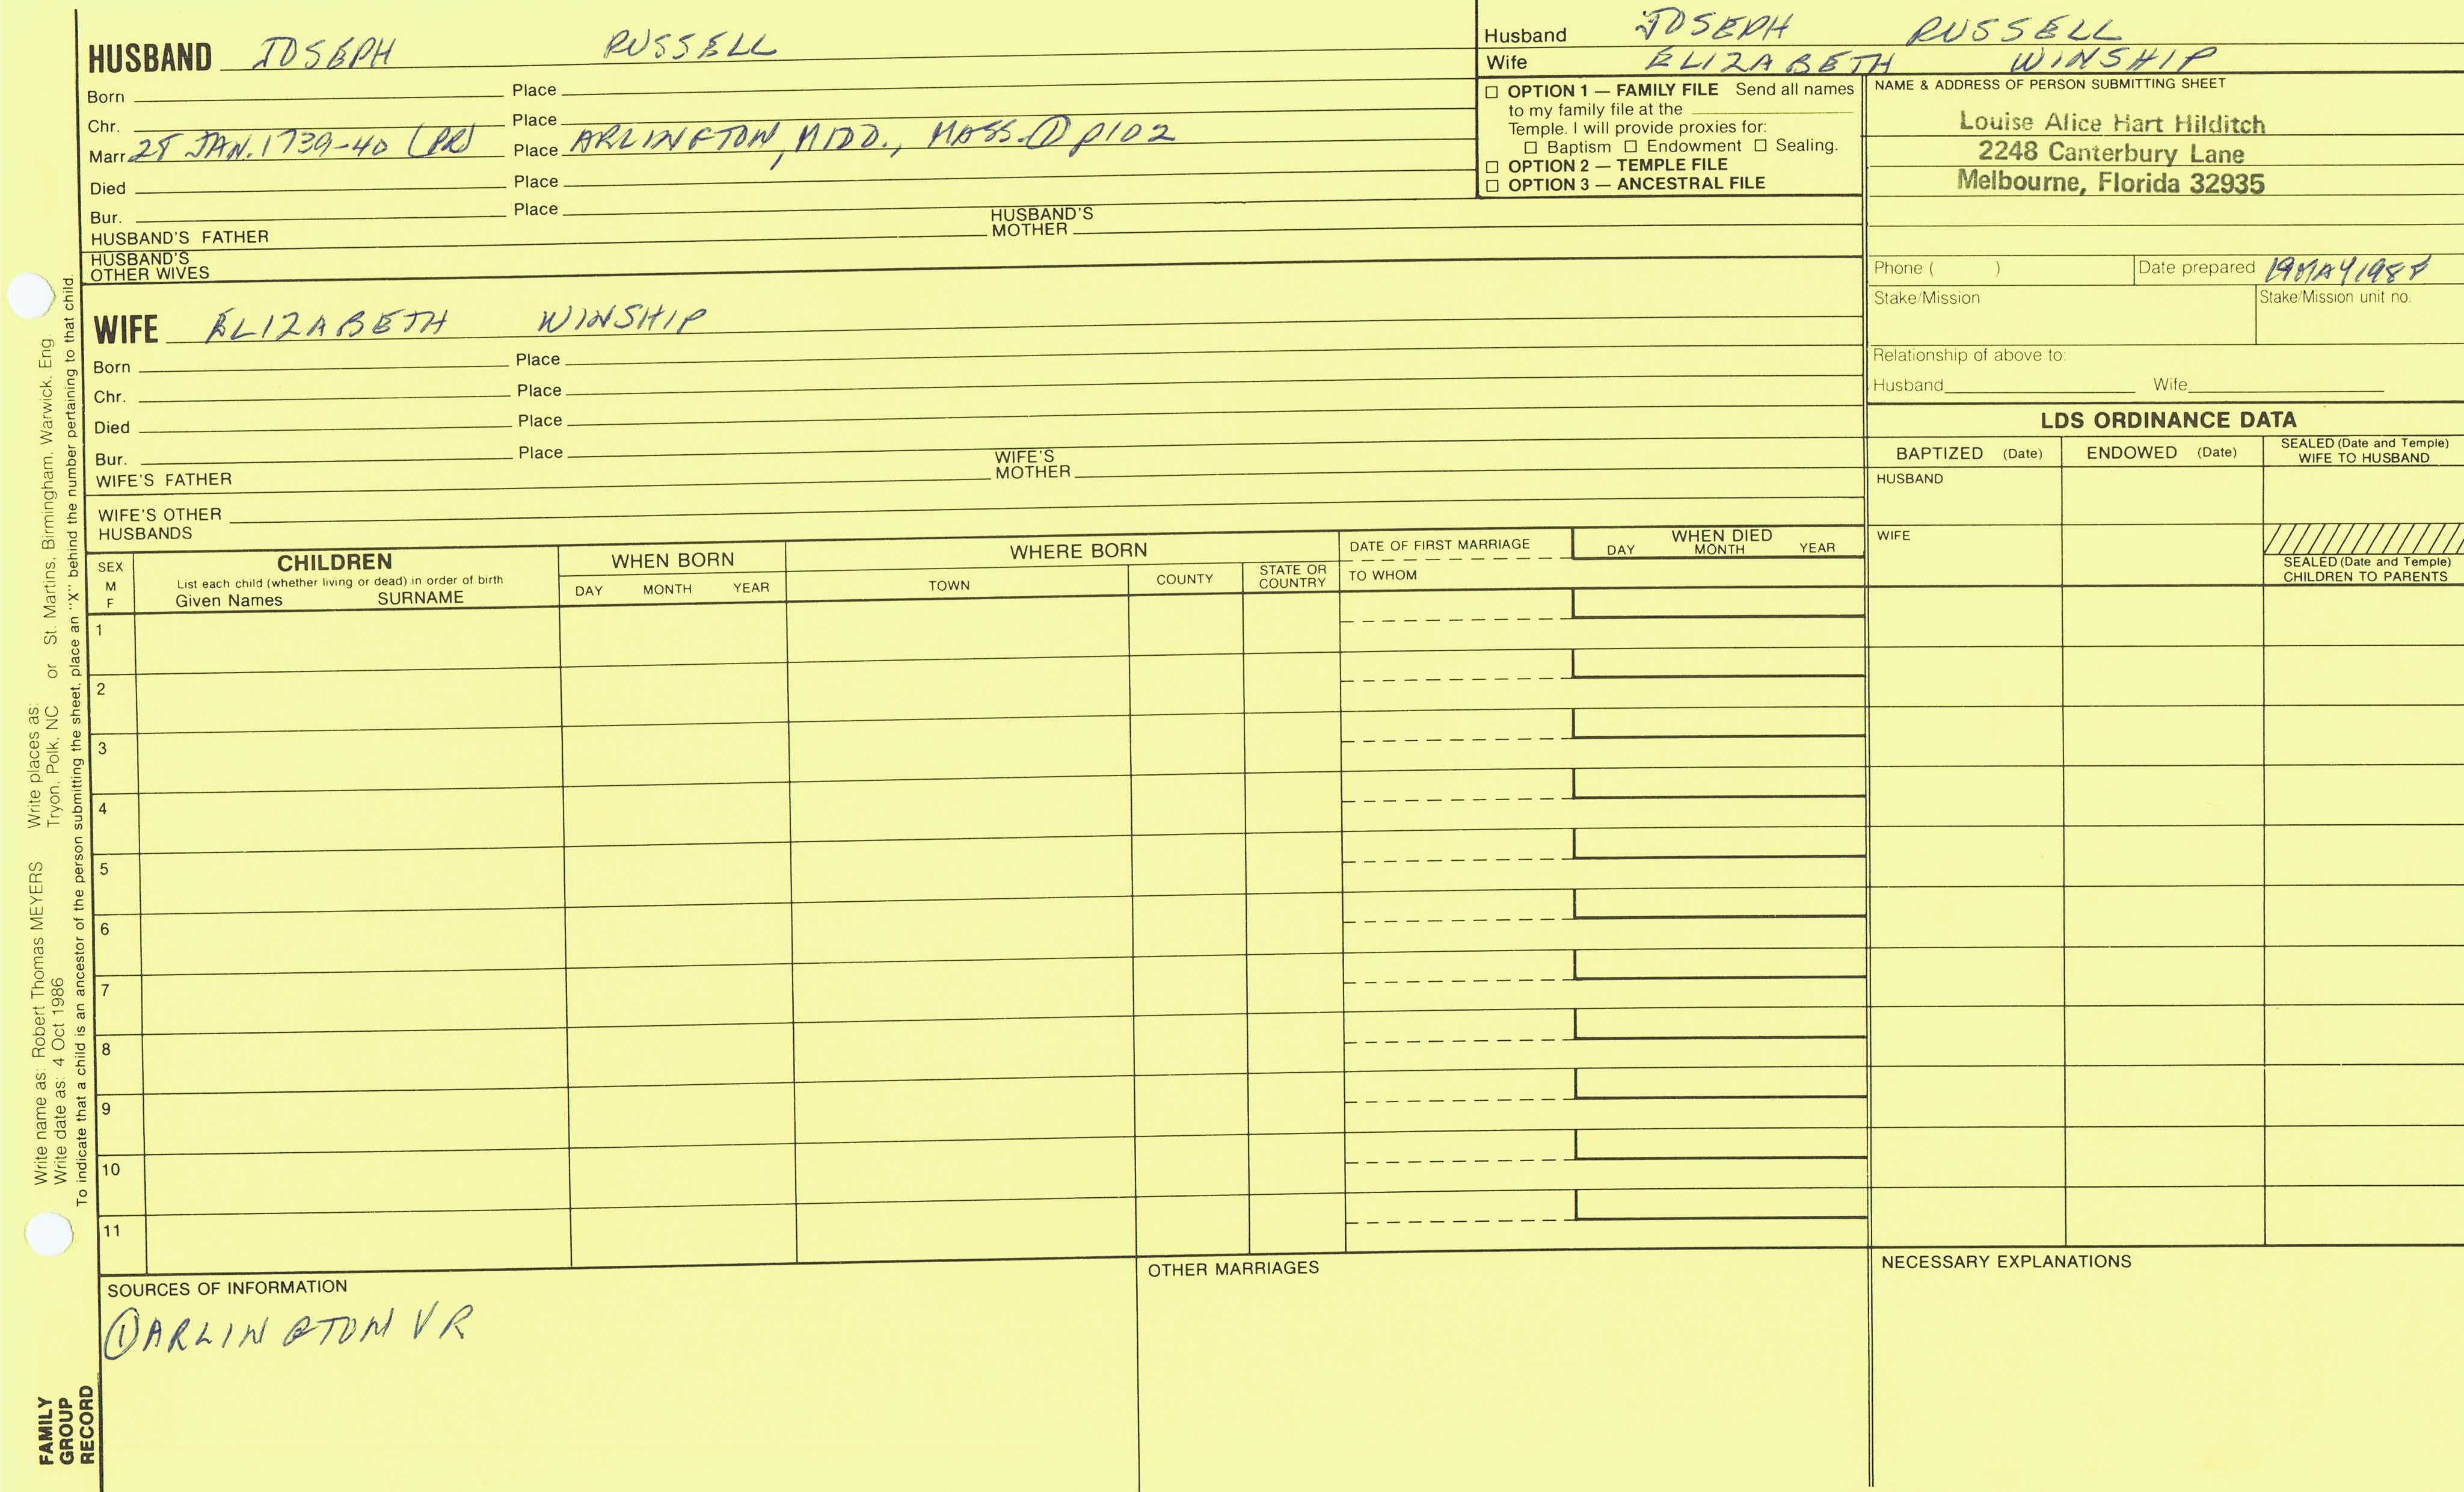 HUSBAND JOSEPH RUSSELL
Born Place
Chr. Place
Marr 28 JAN. 1739-40 (PR) Place ARLINGTON, MIDD., MASS. ① p102
Died Place
Bur. Place
HUSBAND'S FATHER HUSBAND'S MOTHER
HUSBAND'S
OTHER WIVES
WIFE ELIZABETH WINSHIP
Born Place
Chr. Place
Died Place
Bur. Place
WIFE'S FATHER WIFE'S MOTHER
WIFE'S OTHER
HUSBANDS
Husband JOSEPH RUSSELL
Wife ELIZABETH WINSHIP
☐ OPTION 1 — FAMILY FILE Send all names
to my family file at the
Temple. I will provide proxies for:
☐ Baptism ☐ Endowment ☐ Sealing.
☐ OPTION 2 — TEMPLE FILE
☐ OPTION 3 — ANCESTRAL FILE
NAME & ADDRESS OF PERSON SUBMITTING SHEET
Louise Alice Hart Hilditch
2248 Canterbury Lane
Melbourne, Florida 32935
Phone ( ) Date prepared 19 MAY 1988
Stake/Mission Stake/Mission unit no.
Relationship of above to:
Husband Wife
LDS ORDINANCE DATA
BAPTIZED (Date) ENDOWED (Date) SEALED (Date and Temple)
WIFE TO HUSBAND
HUSBAND
WIFE
SEALED (Date and Temple)
CHILDREN TO PARENTS
SEX
M
F
CHILDREN
List each child (whether living or dead) in order of birth
Given Names SURNAME
WHEN BORN
DAY MONTH YEAR
WHERE BORN
TOWN COUNTY STATE OR
COUNTRY
DATE OF FIRST MARRIAGE
TO WHOM
WHEN DIED
DAY MONTH YEAR
1
2
3
4
5
6
7
8
9
10
11
SOURCES OF INFORMATION
① ARLINGTON VR
OTHER MARRIAGES
NECESSARY EXPLANATIONS
Write name as: Robert Thomas MEYERS Write places as:
Write date as: 4 Oct 1986 Tryon, Polk, NC or St. Martins, Birmingham, Warwick, Eng.
To indicate that a child is an ancestor of the person submitting the sheet, place an "X" behind the number pertaining to that child.
FAMILY
GROUP
RECORD